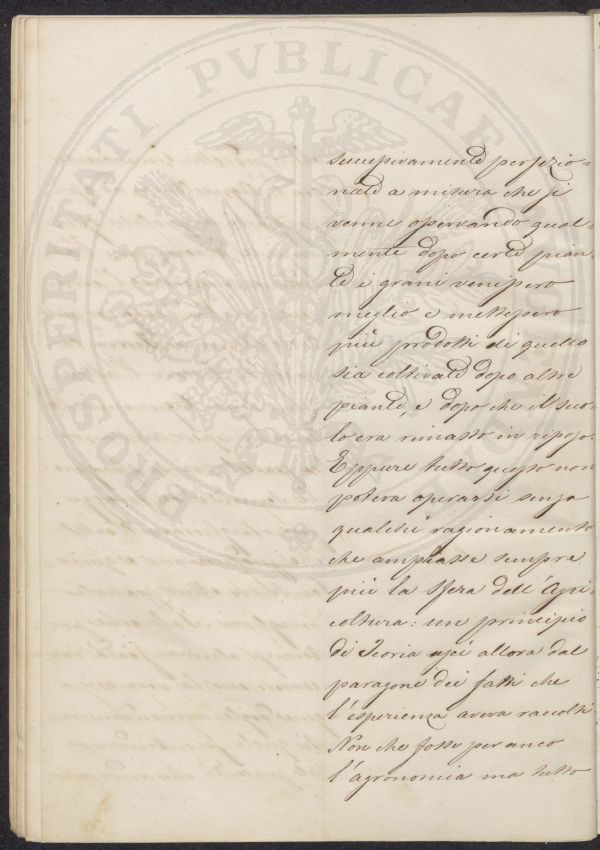 PROSPERITATI PVBLICAE
successivamente perfezio=
nate a misura che si
venne osservando qual=
mente dopo certe pian=
te i grani venissero
meglio e mettessero
più prodotti di quello
sia coltivate dopo altre
piante, e dopo che il suo=
lo era rimasto in riposo.
Eppure tutto questo non
poteva operarsi senza
qualche ragionamento
che ampliasse sempre
più la sfera dell'Agri=
coltura: un principio
di Teoria uscì allora dal
paragone dei fatti che
l'esperienza aveva raccolti
Non che fosse per anco
l'agronomia ma tutto